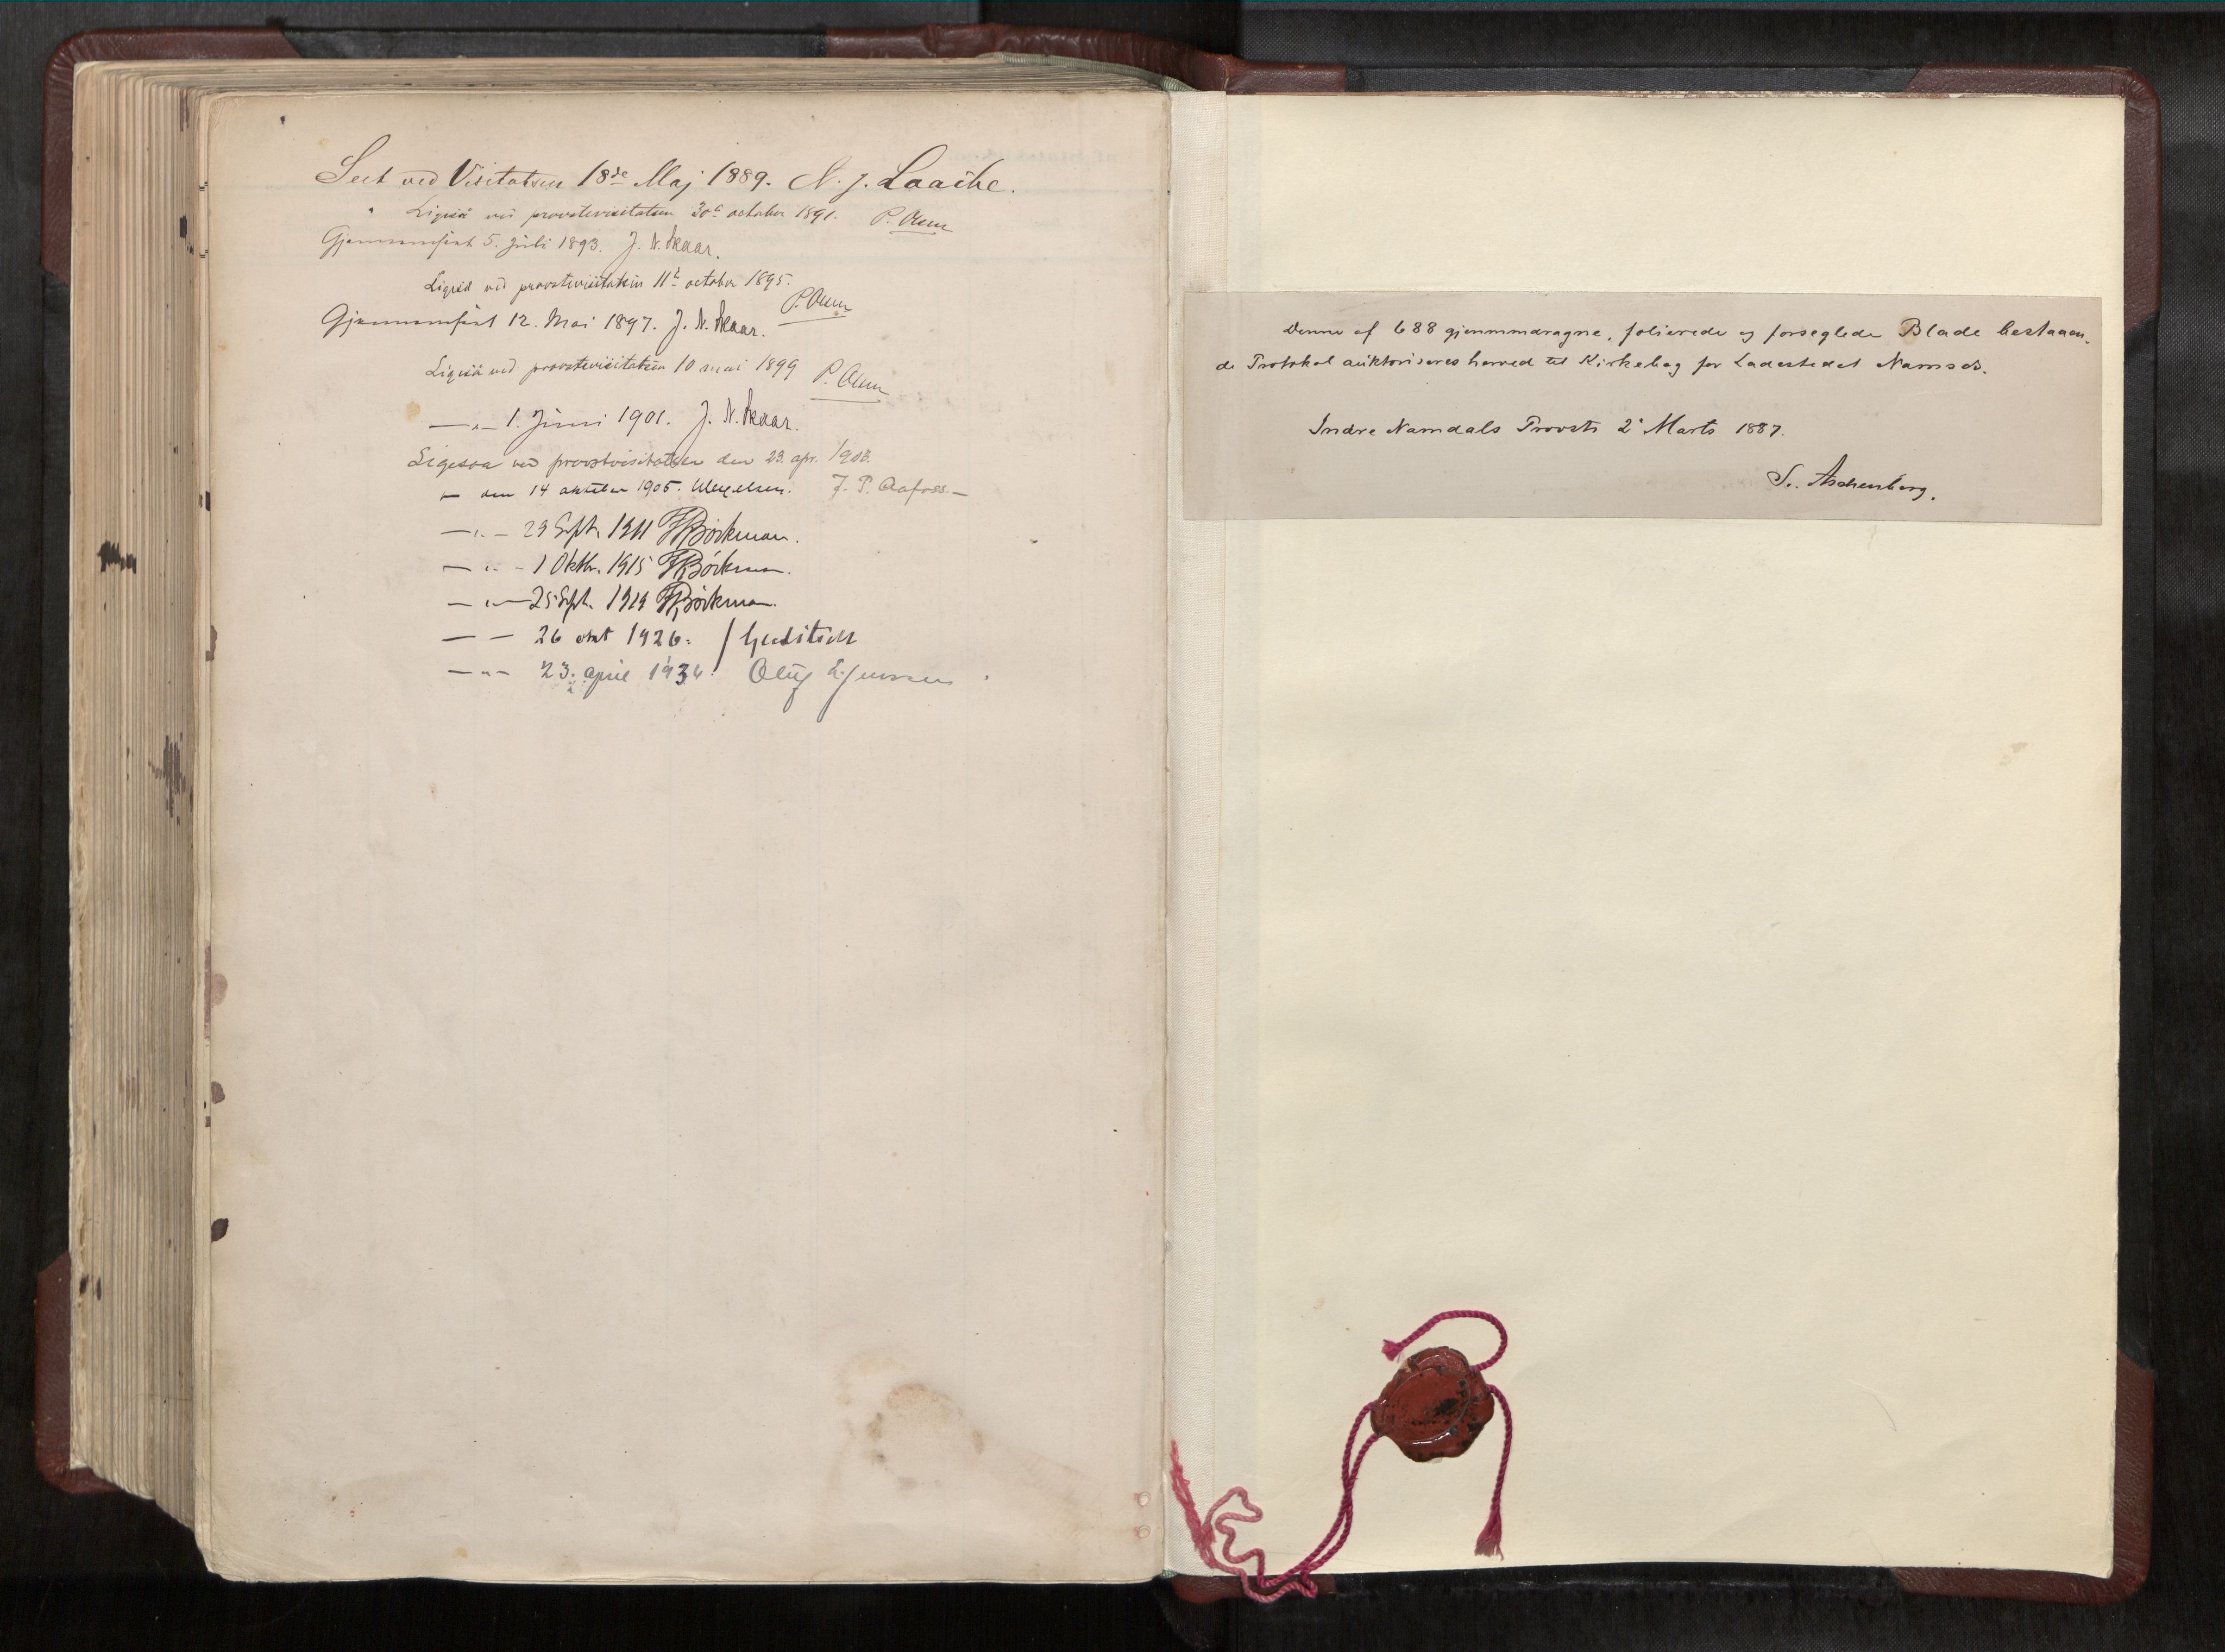 Seet ved Visitatsen 18de Maj 1889. N. J. Laache.
Ligeså ved provstevisitatsen 30te october 1891. P. Oum
Gjennemseet 5. Juli 1893. J. N. Skaar.
Ligeså ved provstevisitatsen 11te october 1895.
P. Oum
Gjennemseet 12. Mai 1897. J. N. Skaar.
Ligeså ved provstevisitatsen 10 mai 1899 P. Oum
—"— 1. Juni 1901. J. N. Skaar.
Ligesaa ved provstvisitatsen den 23. apr. 1903.
— den 14 oktober 1905. Wexelsen. J. P. Aafoss —
—"— 29 Sept. 1911 Bøckman.
—"— 1 Oktbr. 1915 Bøckman.
—"— 25 Sept. 1919 Bøckman.
— — 26 okt 1926.
—"— 23. april 1934
Denne af 688 gjennemdragne, folierede og forseglede Blade bestaaen-
de Protokol auktoriseres herved til Kirkebog for Ladestedet Namsos.
Indre Namdals Provsti 2' Marts 1887.
S. Aschenberg.